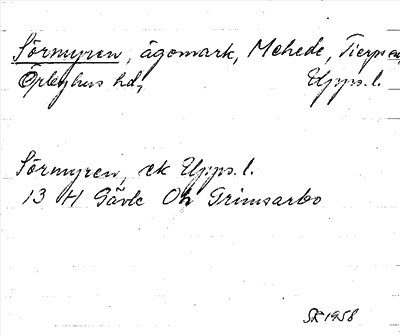 Sörmyren, ägomark, Mehede, Tierps sn,
Örbyhus hd, Upps. l.
Sörmyren, ek Upps. l.
13 H Gävle Oh Grimsarbo
SK 1958